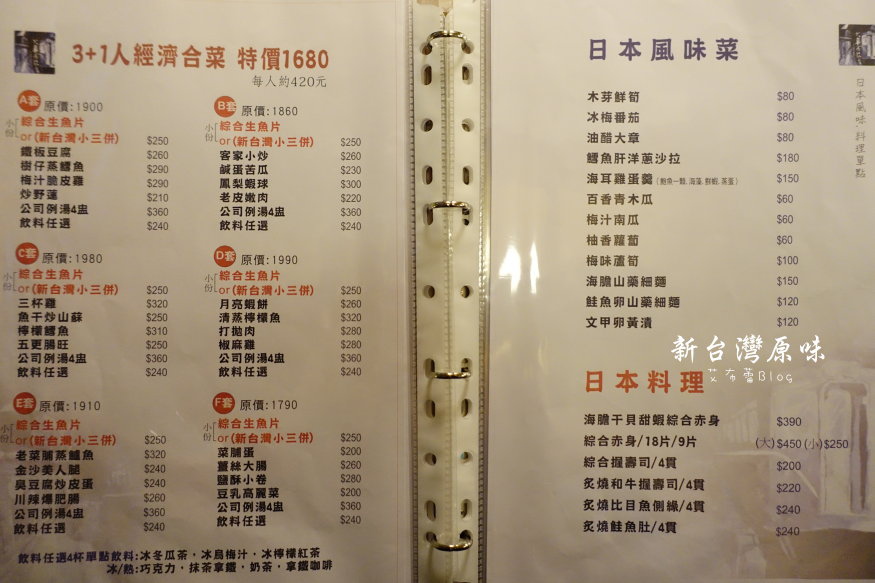 3+1人經濟合菜 特價1680
每人約420元
A套 原價:1900
小份 綜合生魚片
or(新台灣小三併) $250
鐵板豆腐 $260
樹仔蒸鱈魚 $290
梅汁脆皮雞 $290
炒野蓮 $210
公司例湯4盅 $360
飲料任選 $240
B套 原價:1860
小份 綜合生魚片
or(新台灣小三併) $250
客家小炒 $260
鹹蛋苦瓜 $230
鳳梨蝦球 $300
老皮嫩肉 $220
公司例湯4盅 $360
飲料任選 $240
C套 原價:1980
小份 綜合生魚片
or(新台灣小三併) $250
三杯雞 $320
魚干炒山蘇 $250
檸檬鱈魚 $310
五更腸旺 $250
公司例湯4盅 $360
飲料任選 $240
D套 原價:1990
小份 綜合生魚片
or(新台灣小三併) $250
月亮蝦餅 $260
清蒸檸檬魚 $320
打拋肉 $280
椒麻雞 $280
公司例湯4盅 $360
飲料任選 $240
E套 原價:1910
小份 綜合生魚片
or(新台灣小三併) $250
老菜脯蒸鱸魚 $320
金沙美人腿 $240
臭豆腐炒皮蛋 $240
川辣爆肥腸 $260
公司例湯4盅 $360
飲料任選 $240
F套 原價:1790
小份 綜合生魚片
or(新台灣小三併) $250
菜脯蛋 $200
薑絲大腸 $260
鹽酥小卷 $280
豆乳高麗菜 $200
公司例湯4盅 $360
飲料任選 $240
飲料任選4杯單點飲料:冰冬瓜茶，冰烏梅汁，冰檸檬紅茶
冰/熱:巧克力，抹茶拿鐵，奶茶，拿鐵咖啡
日本風味菜
木芽鮮筍 $80
冰梅番茄 $80
油醋大章 $80
鱈魚肝洋蔥沙拉 $180
海耳雞蛋羹(鮑魚一顆,海藻,鮮蝦,蒸蛋) $150
百香青木瓜 $60
梅汁南瓜 $60
柚香蘿蔔 $60
梅味蘆筍 $100
海膽山藥細麵 $150
鮭魚卵山藥細麵 $120
文甲卵黃漬 $120
新台灣原味
艾布蕾Blog
日本料理
海膽干貝甜蝦綜合赤身 $390
綜合赤身/18片/9片 (大)$450(小)$250
綜合握壽司/4貫 $200
炙燒和牛握壽司/4貫 $220
炙燒比目魚側緣/4貫 $240
炙燒鮭魚肚/4貫 $240
日本風味·料理單點